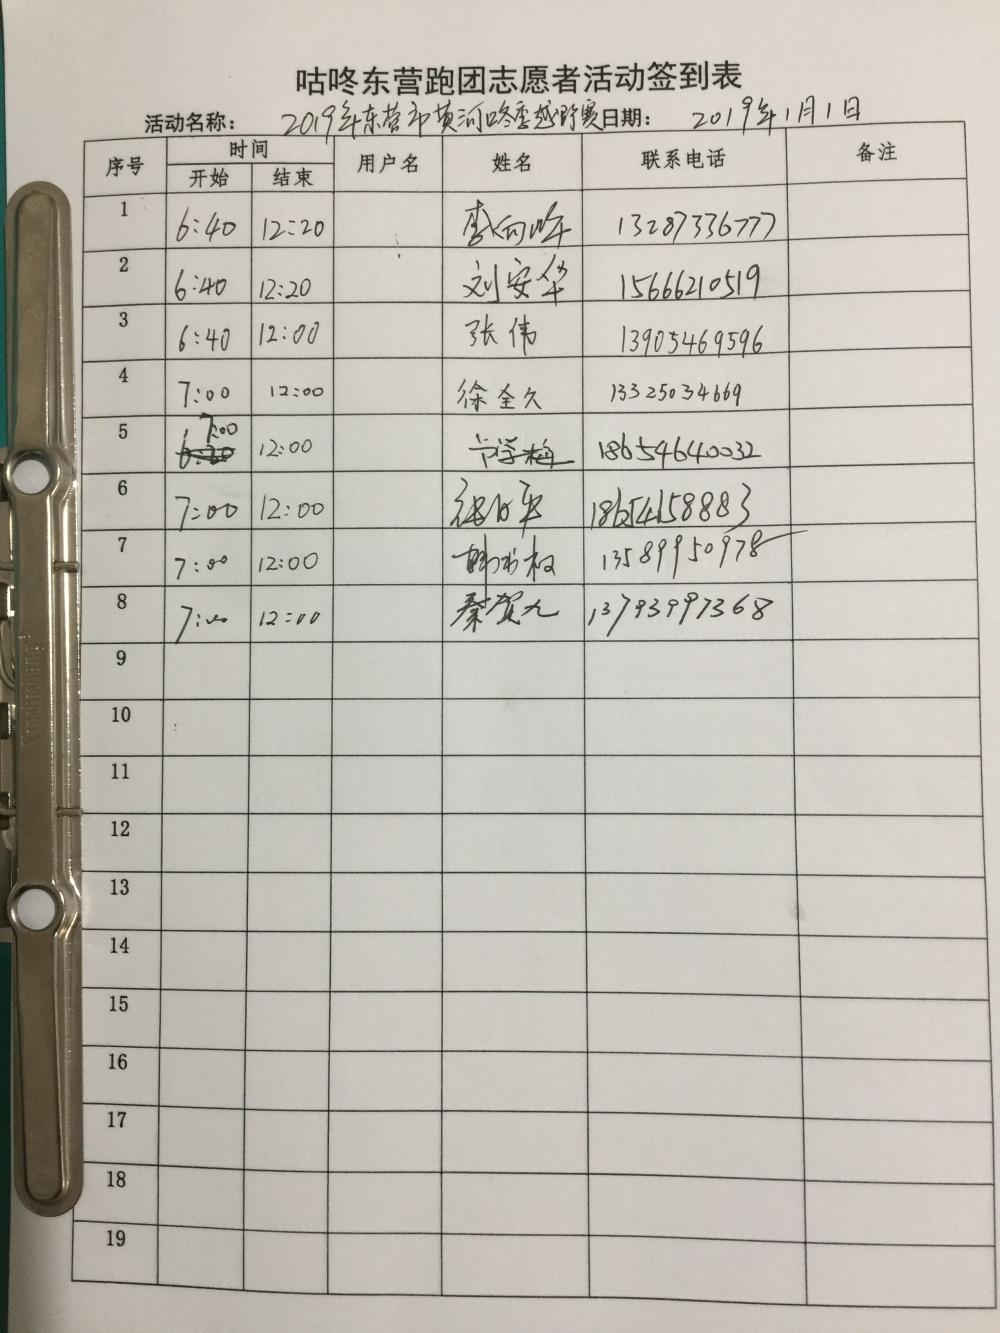 咕咚东营跑团志愿者活动签到表
活动名称： 2019年东营市黄河口冬季越野赛 日期： 2019年1月1日
序号 时间 用户名 姓名 联系电话 备注
开始 结束
1 6:40 12:20 李向峰 13287336777
2 6:40 12:20 刘安华 15666210519
3 6:40 12:00 张伟 13905469596
4 7:00 12:00 徐全久 13325034669
5 7:00 12:00 18654640032
6 7:00 12:00 18654158883
7 7:00 12:00 13589950978
8 7:00 12:00 秦贺九 13793997368
9
10
11
12
13
14
15
16
17
18
19